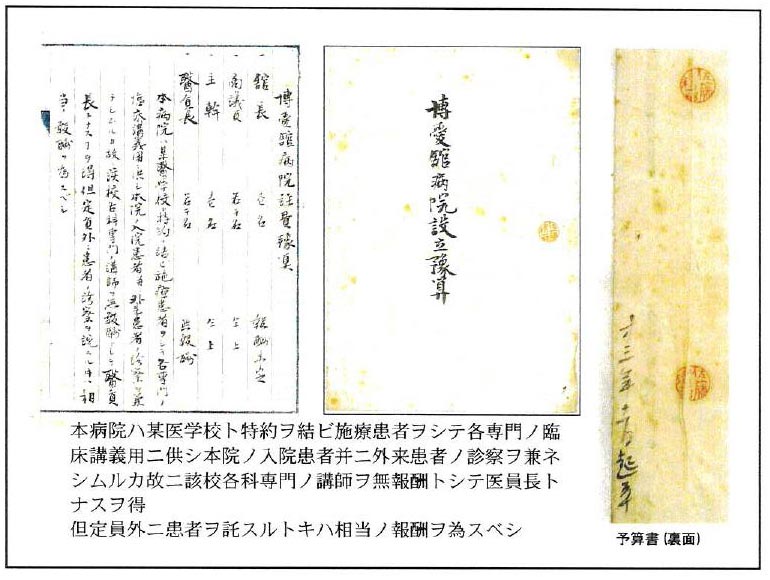 博愛館病院諸費豫算
一 館長 壱名 報酬不定
一 商議員 若干名 仝上
一 主幹 壱名 仝上
一 醫員長 若干名 無報酬
本病院ハ某醫学校ト特約ヲ結ビ施療患者ヲシテ各専門ノ
臨床講義用ニ供シ本院ノ入院患者并外来患者ノ診察ヲ兼
子シムルカ故ニ該校各科専門ノ講師ヲ無報酬トシテ醫員
長トナスヲ得但定員外ニ患者ノ診察ヲ託スルトキハ相
当ノ報酬ヲ為スベシ
博愛館病院設立豫算
三年 起草
本病院ハ某医学校ト特約ヲ結ビ施療患者ヲシテ各専門ノ臨
床講義用ニ供シ本院ノ入院患者并ニ外来患者ノ診察ヲ兼ネ
シムルカ故ニ該校各科専門ノ講師ヲ無報酬トシテ医員長ト
ナスヲ得
但定員外ニ患者ヲ託スルトキハ相当ノ報酬ヲ為スベシ
予算書(裏面)